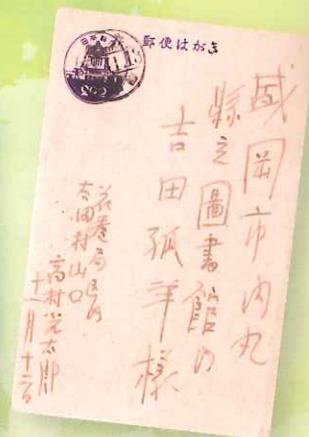 郵便はがき
盛岡市内丸
縣立圖書館内
吉田孤羊様
花巻局区内
太田村山口
高村光太郎
十一月十二日